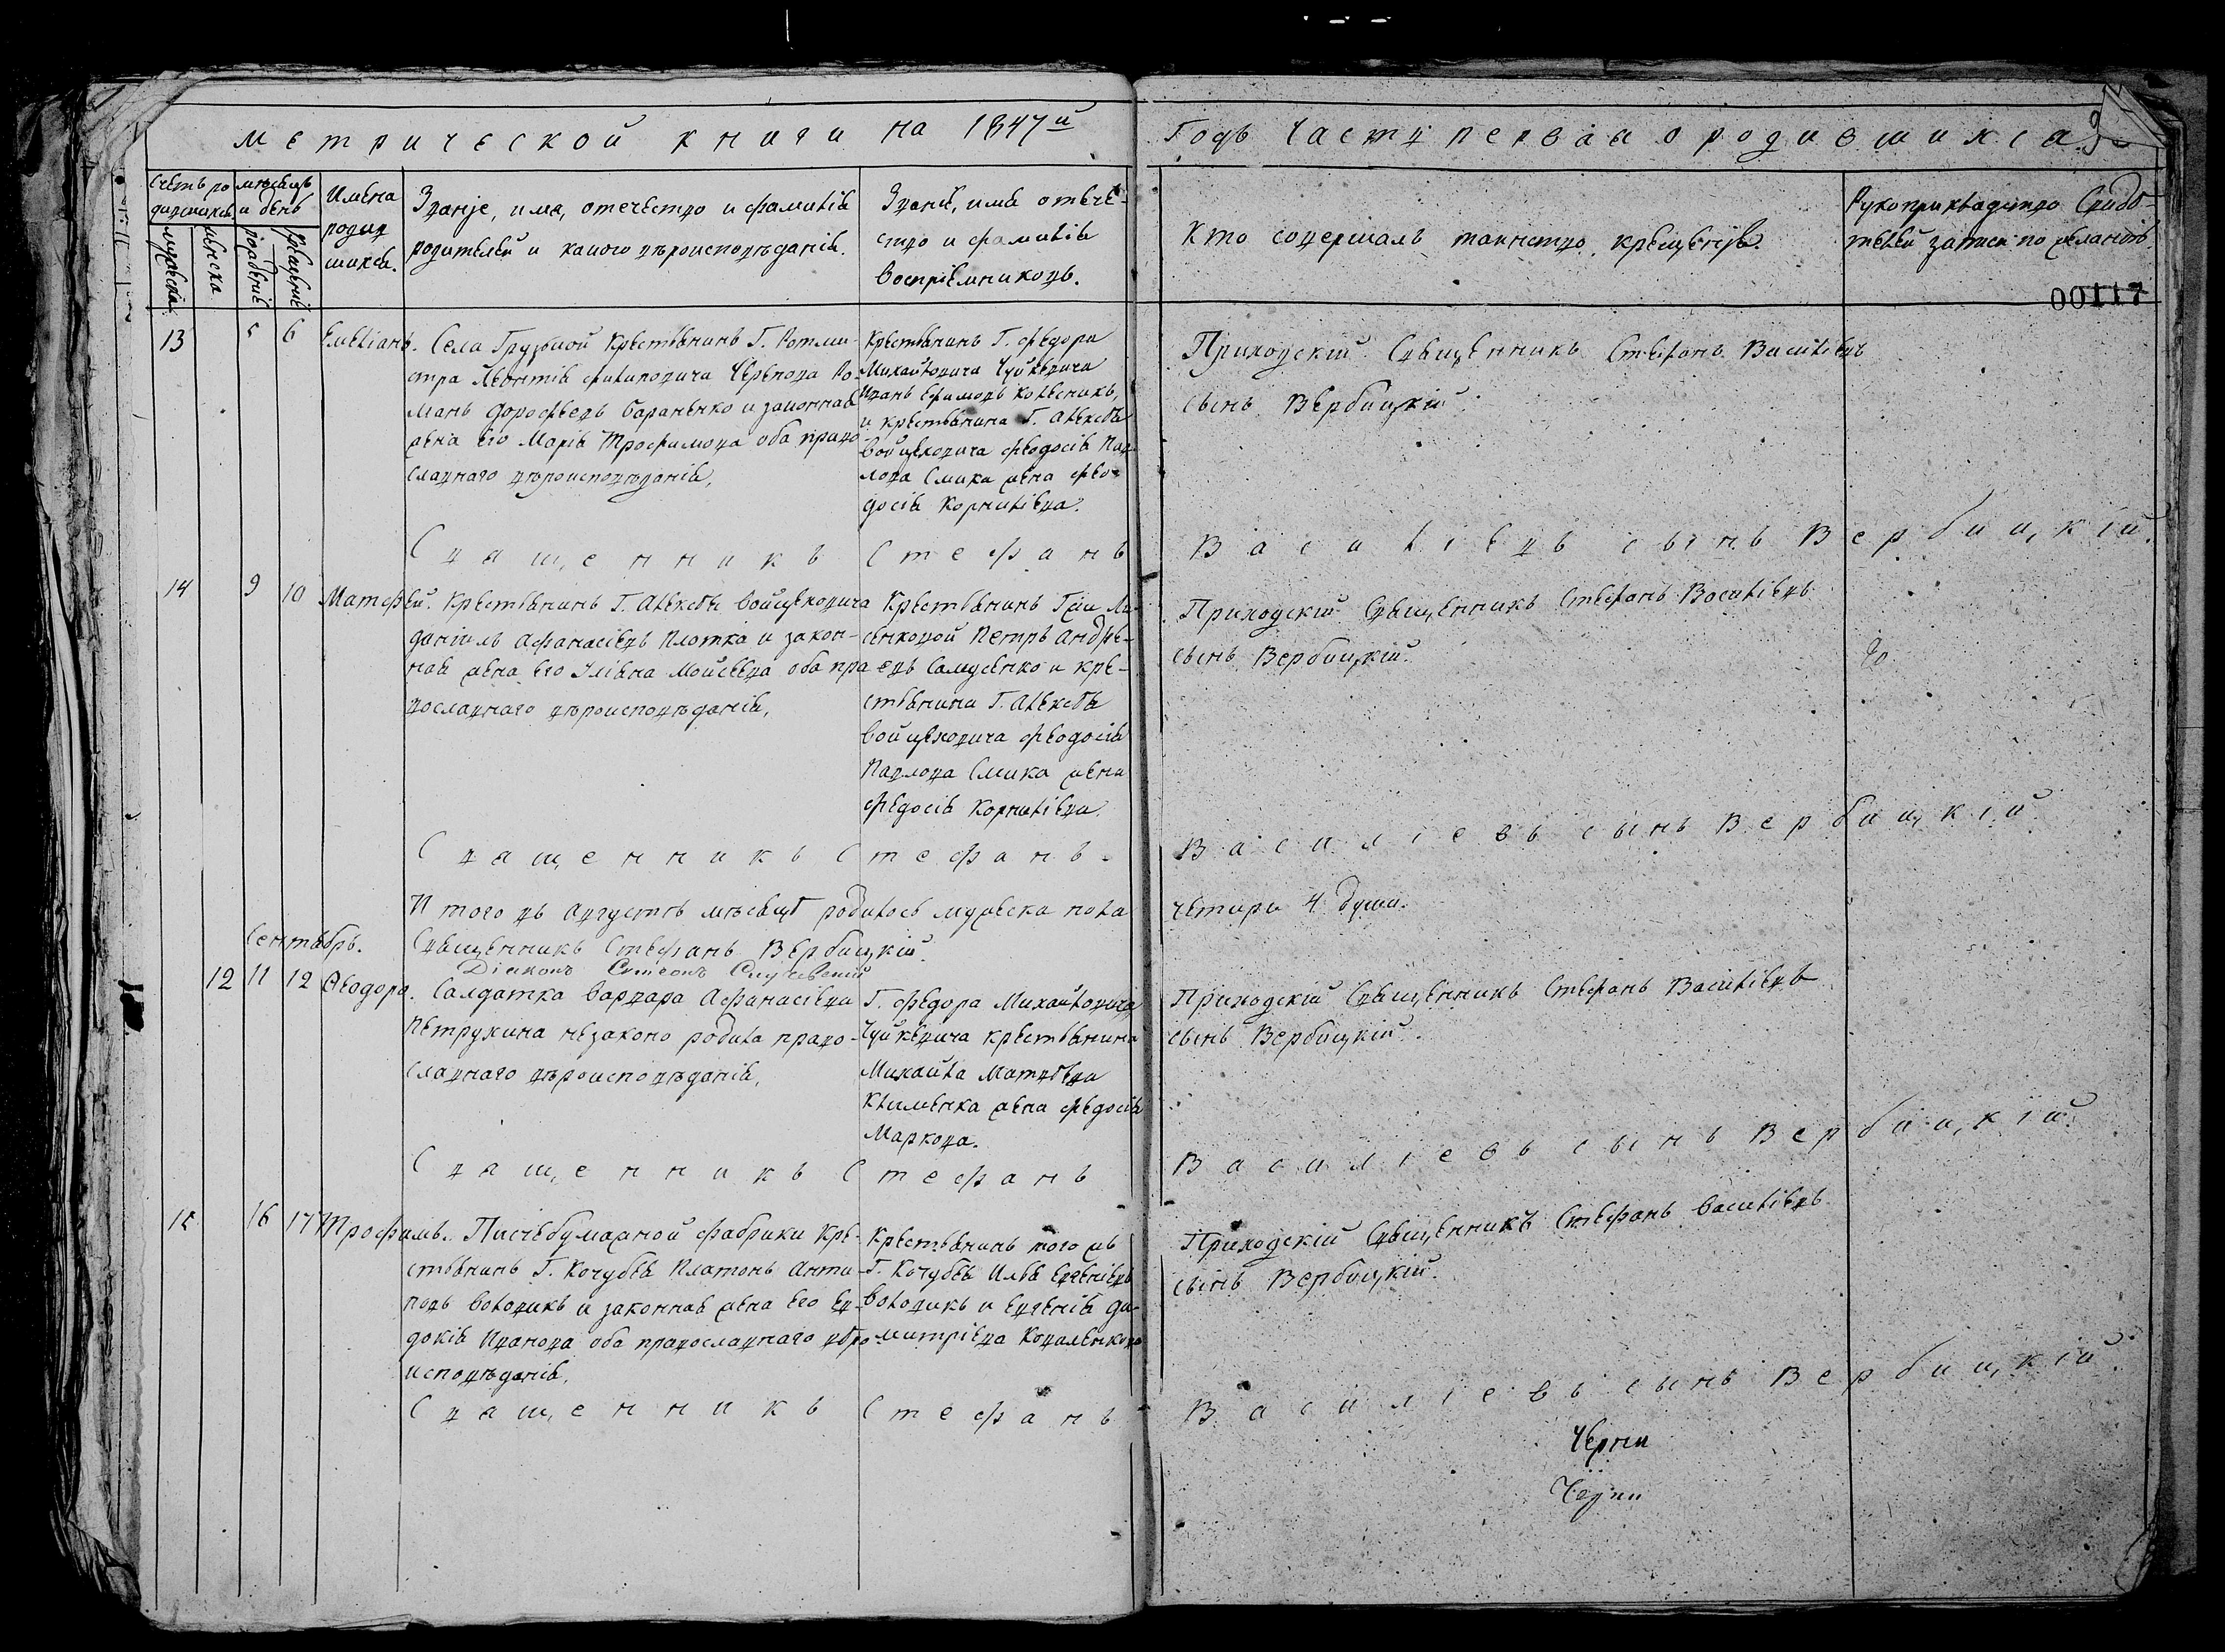 метрической книги на 1847й
Годъ Часть первая о родившихся
Счетъ ро
дившихся
мужеска
женска
месяцъ
и день
рождение
крещение
Имена
родив
шихся.
Званіе, имя, отечество и фамилія
родителей и какого вѣроисповѣданія.
Званіе, имя отече-
ство и фамилія
воспріемниковъ.
Кто совершалъ таинство крещенія.
Рукоприкладство Свидѣ-
телей записи по желанію
00117
13 5 6 Емеліанъ.
Села Грузкой крестьянинъ Г. Ротми-
стра Леонтія Филиповича Черепова Ро-
манъ Дорофеевъ Бараненко и законная
жена его Марія Трофимова оба право
славнаго вѣроисповѣданія,
Крестьянинъ Г. Федора
Михайловича Чуйкевича
Иванъ Ефимовъ Колесникъ,
и крестьянина Г. Алексѣя
Войцеховича Феодосія Пав-
лова Смика жена Фео-
досія Корниліева.
Приходскій Священникъ Стефанъ Василіевъ
сынъ Вербицкій.
Священникъ Стефанъ
Василіевъ сынъ Вербицкій.
14 9 10 Матфей.
Крестьянинъ Г. Алексѣя Войцеховича
Даніилъ Афанасіевъ Плотка и закон-
ная жена его Уліяна Мойсеева оба пра
вославнаго вѣроисповѣданія,
Крестьянинъ Гжи Ли-
сенковой Петръ Андре-
евъ Самусенко и кре-
стьянина Г. Алексѣя
Войцеховича Феодосія
Павлова Смика жена
Федосія Корниліева.
Приходскій Священникъ Стефанъ Василіевъ
сынъ Вербицкій.
Священникъ Стефанъ
Василіевъ сынъ Вербицкій
Итого въ Августѣ мѣсяцѣ родилось мужеска пола
четыри 4 души.
Священникъ Стефанъ Вербицкій.
Діаконъ Симеонъ
Сентябрь.
12 11 12 Феодора.
Салдатка Варвара Афанасіева
Петрухина незаконо родила право-
славнаго вѣроисповѣданія,
Г. Федора Михайловича
Чуйкевича крестьянина
Михайла Матвѣева
Клименка жена Федосія
Маркова.
Приходскій Священникъ Стефанъ Василіевъ
сынъ Вербицкій.
Священникъ Стефанъ
Василіевъ сынъ Вербицкій.
16 17 Трофимъ.
Писчебумажной фабрики кре-
стьянинъ Г. Кочубѣя Платонъ Анти-
повъ Воловикъ и законная жена его Ев-
докія Иванова оба православнаго вѣро
исповѣданія,
Крестьянинъ того жъ
Г. Кочубѣя Илья Евгеніевъ
Воловикъ и Евгенія Ди-
митріева Коваленкова
Приходскій Священникъ Стефанъ Василіевъ
сынъ Вербицкій.
Священникъ Стефанъ
Василіевъ сынъ Вербицкій.